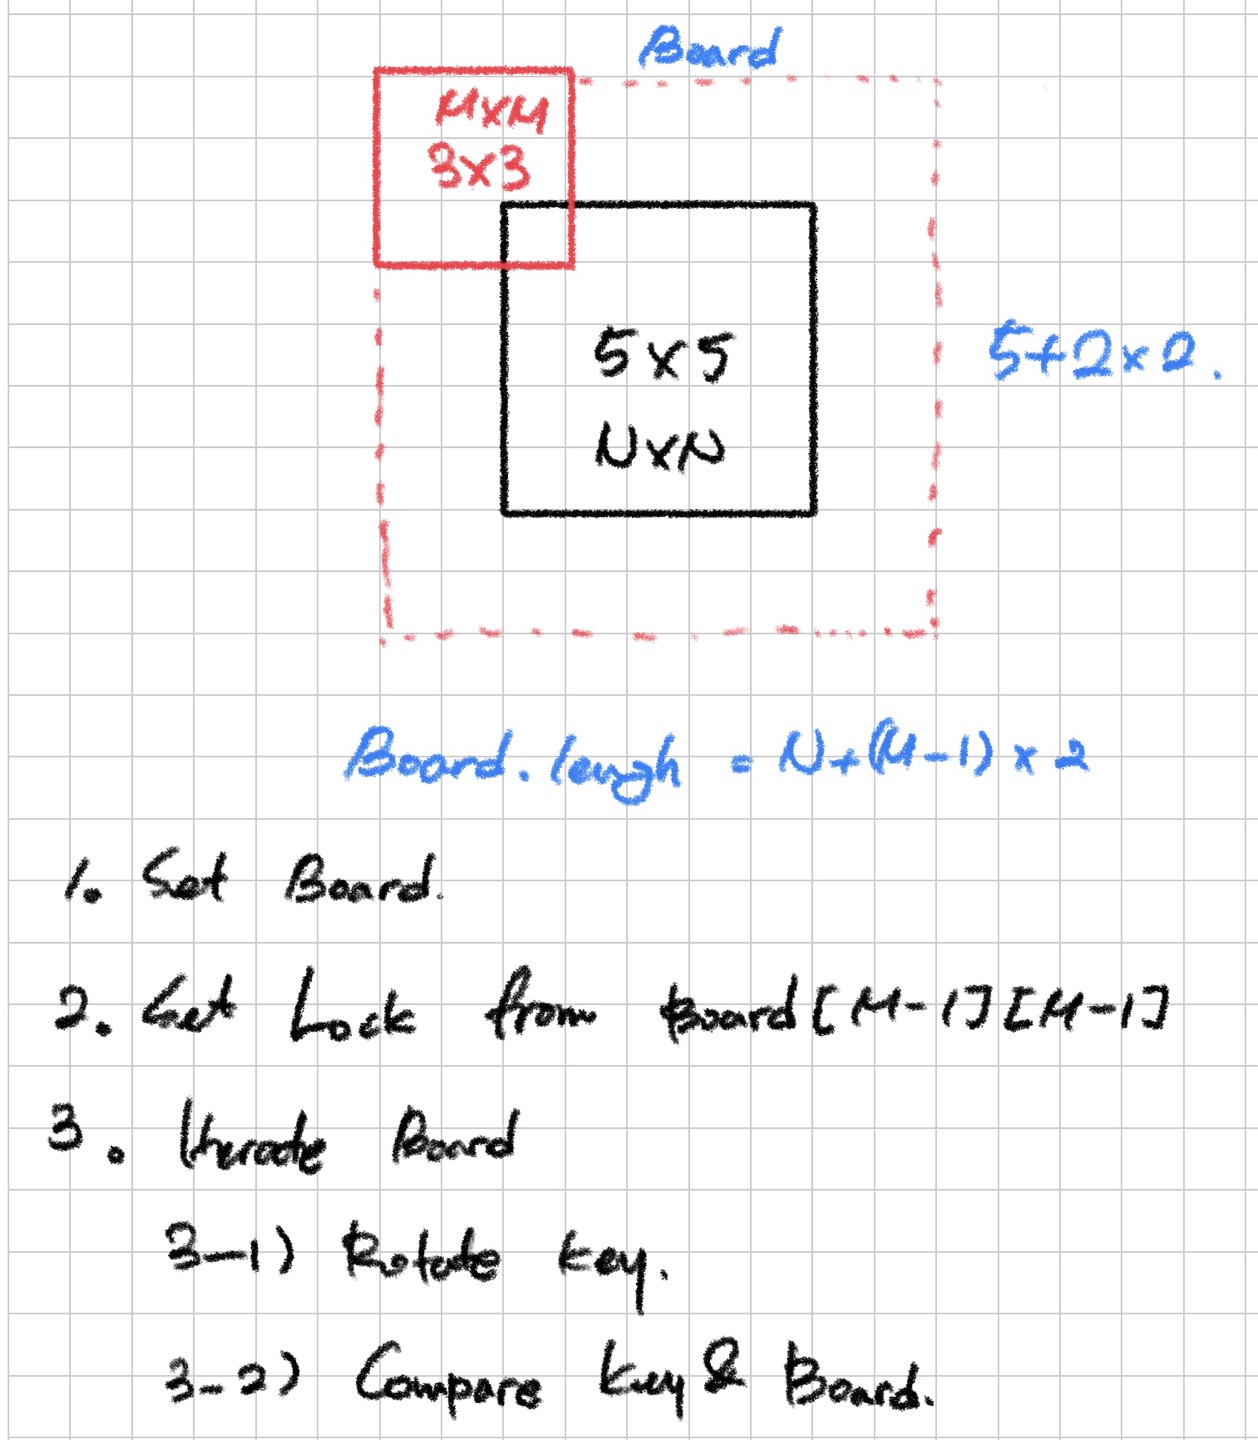 Board
MxM
3x3
5x5
NxN
5+2x2.
Board.lengh = N+(M-1) x 2
1. Set Board.
2. Set Lock from Board[M-1][M-1]
3. Iterate Board
3-1) Rotate key.
3-2) Compare key & Board.